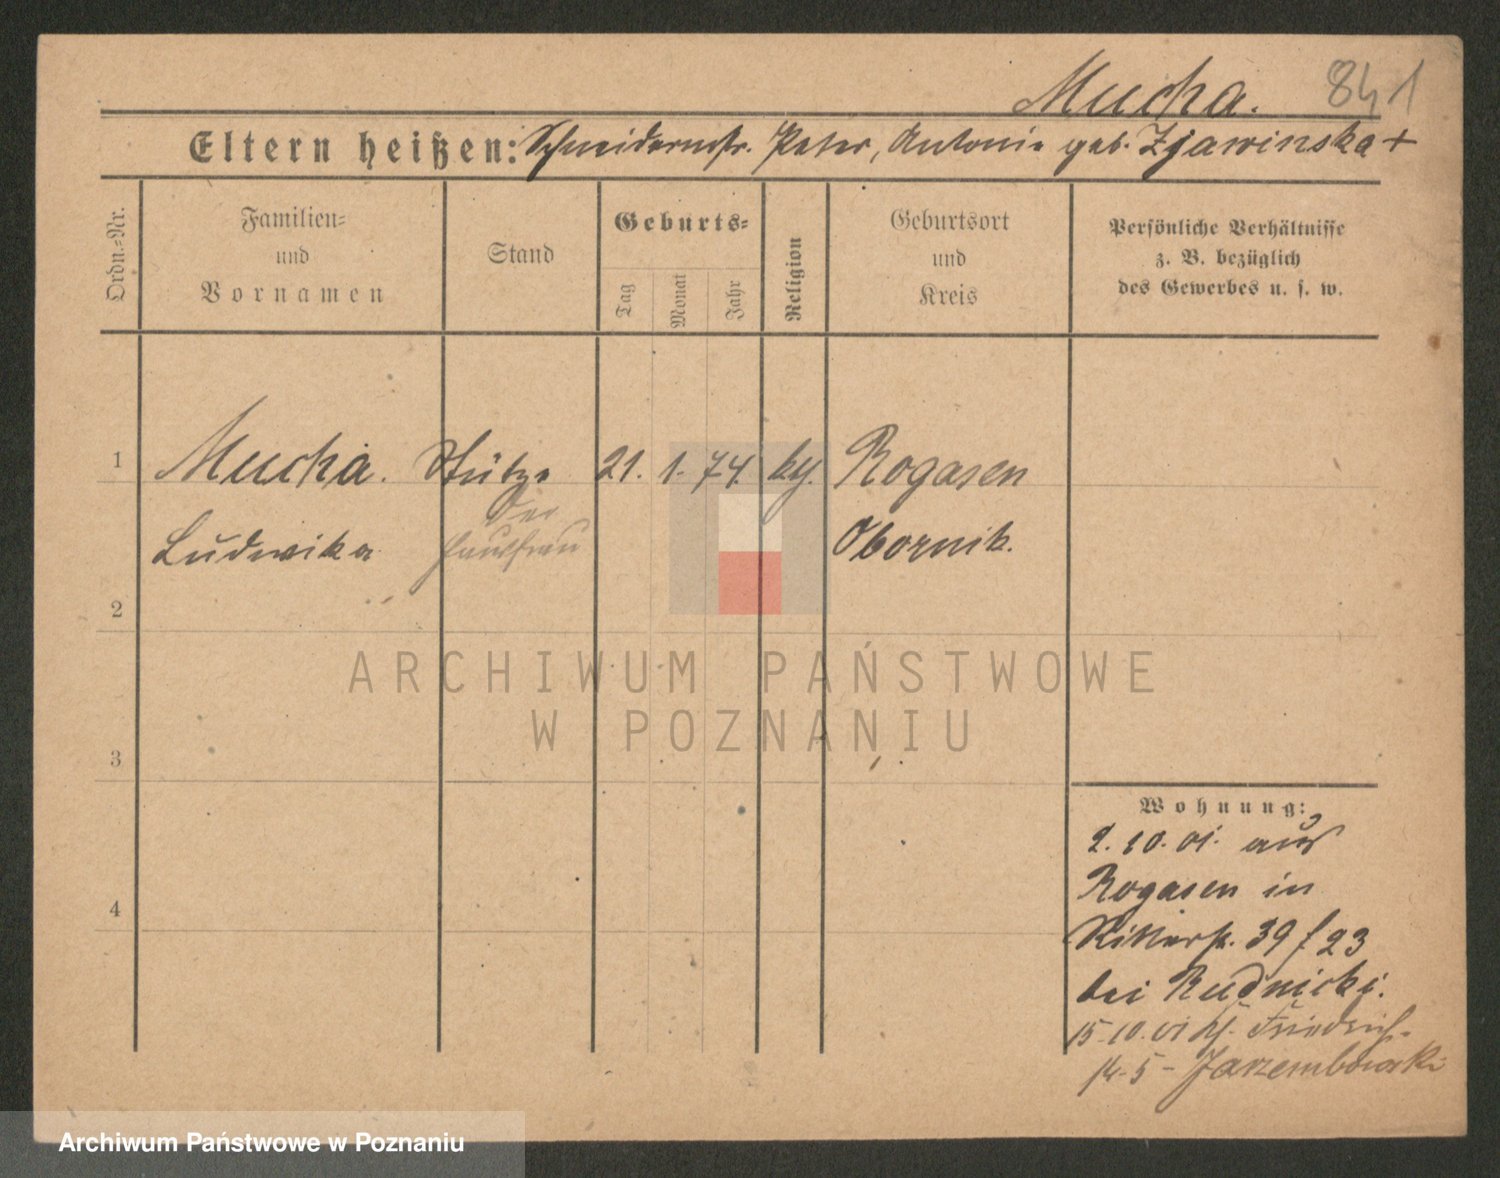 Mucha. 841
Eltern heißen: Schneidermstr. Peter, Antonie geb. Zjawinska +
Ordn.-Nr.
Familien-
und
Vornamen
Stand
Geburts-
Tag
Monat
Jahr
Religion
Geburtsort
und
Kreis
Persönliche Verhältnisse
z. B. bezüglich
des Gewerbes u. s. w.
1 Mucha. Stütze 21. 1. 74. kth. Rogasen
der
Ludwika Hausfrau Obornik.
2
3
4
Wohnung:
2. 10. 01. aus
Rogasen in
Ritterstr. 39 f 23
bei Rudnicki.
15.10.01 Friedrich-
str. 5 - Jarzembowski
ARCHIWUM PAŃSTWOWE
W POZNANIU
Archiwum Państwowe w Poznaniu